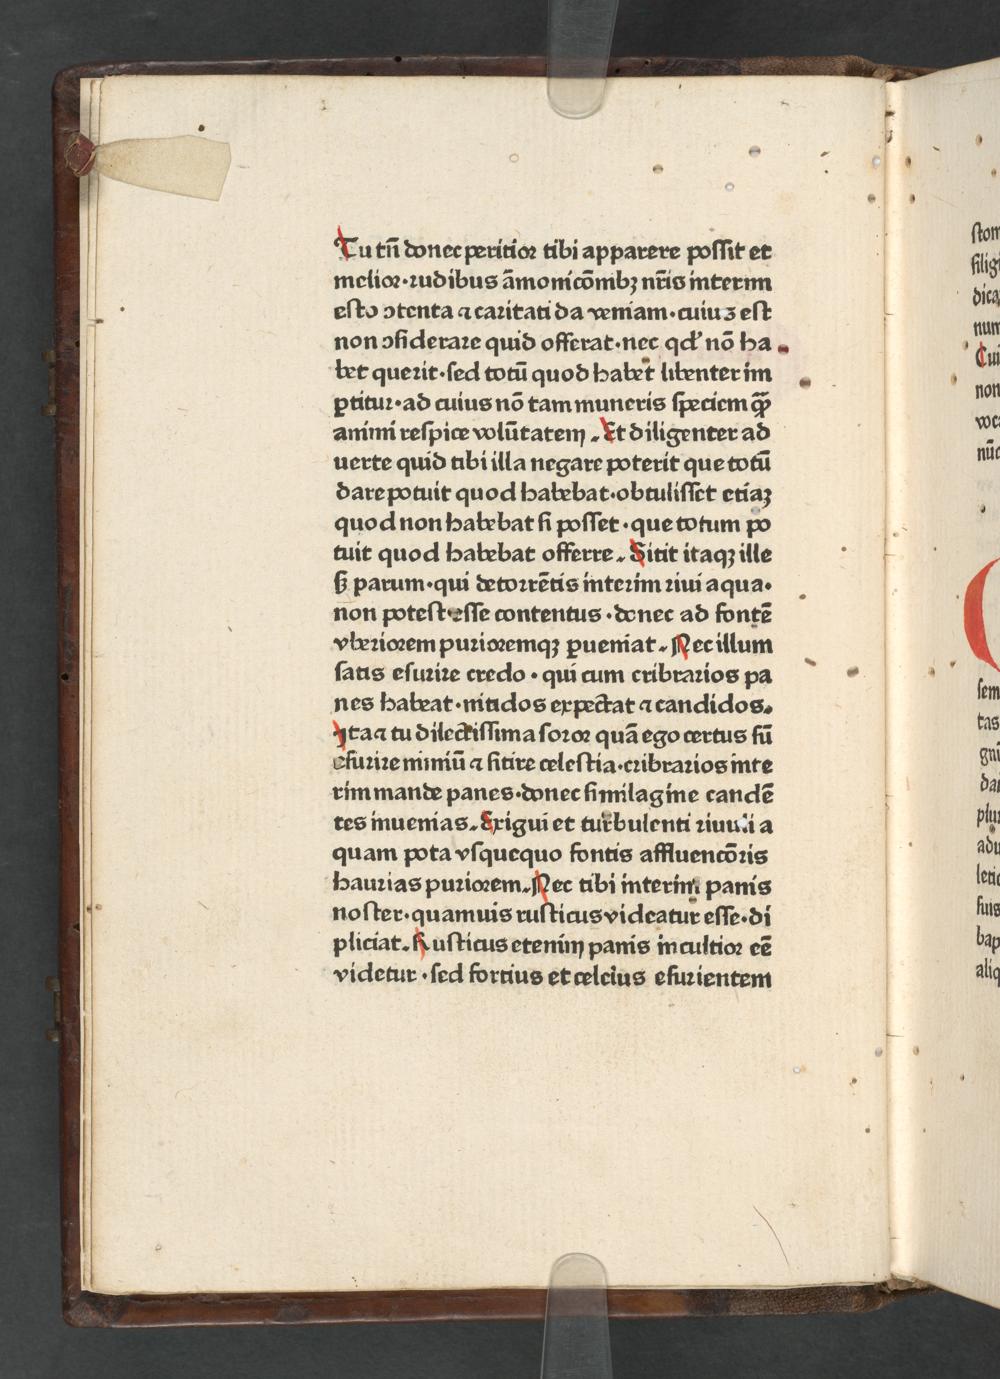 Tu tñ donec peritior tibi apparere possit et
melior·rudibus āmonicōmbꝫ nr̄is interim
esto ↄtenta ⁊ caritati da veniam·cuiuꝫ est
non ↄsiderare quid offerat·nec qd' nō ha
bet querit·sed totū quod habet libenter im
ꝑtitur·ad cuius nō tam muneris speciem ꝙꝫ
animi respice volūtatem. Et diligenter ad
uerte quid tibi illa negare poterit que totū
dare potuit quod habebat·obtulisset etiaꝫ
quod non habebat si posset·que totum po
tuit quod habebat offerre. Sitit itaqꝫ ille
sꝫ parum·qui de torrētis interim riui aqua·
non potest esse contentus·donec ad fontē
vberiorem purioremqꝫ ꝑueniat. Nec illum
satis esurire credo·qui cum cribrarios pa
nes habeat·nitidos expectat ⁊ candidos.
Ita ⁊ tu dilectissima soror quā ego certus sū
esurire nimiū ⁊ sitire celestia·cribrarios inte
rim mande panes·donec similagine candē
tes inuenias. Exigui et turbulenti riuuli a
quam pota vsquequo fontis affluencōris
haurias puriorem. Nec tibi interim panis
noster·quamuis rusticus videatur esse·di
pliciat. Rusticus etenim panis incultior eē
videtur·sed fortius et celcius esurientem
stom
silig
dica
num
Cui
non
voca
nūc
sem
tas
gni
dar
plur
adu
letic
fuis
bap
aliq